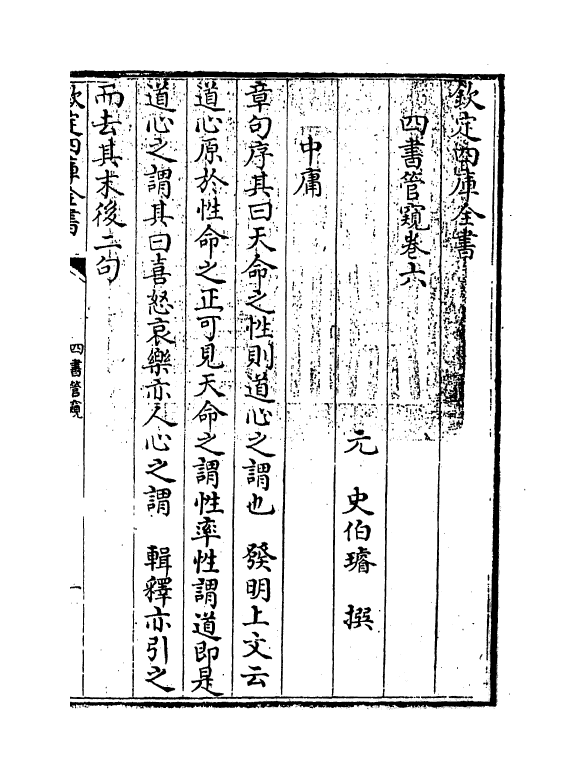 欽定四庫全書
四書管窺卷六
元　史伯璿　撰
中庸
章句序其曰天命之性則道心之謂也　發明上文云
道心原於性命之正可見天命之謂性率性謂道即是
道心之謂其曰喜怒哀樂亦人心之謂　輯釋亦引之
而去其末後二句
欽定四庫全書
四書管窺
一